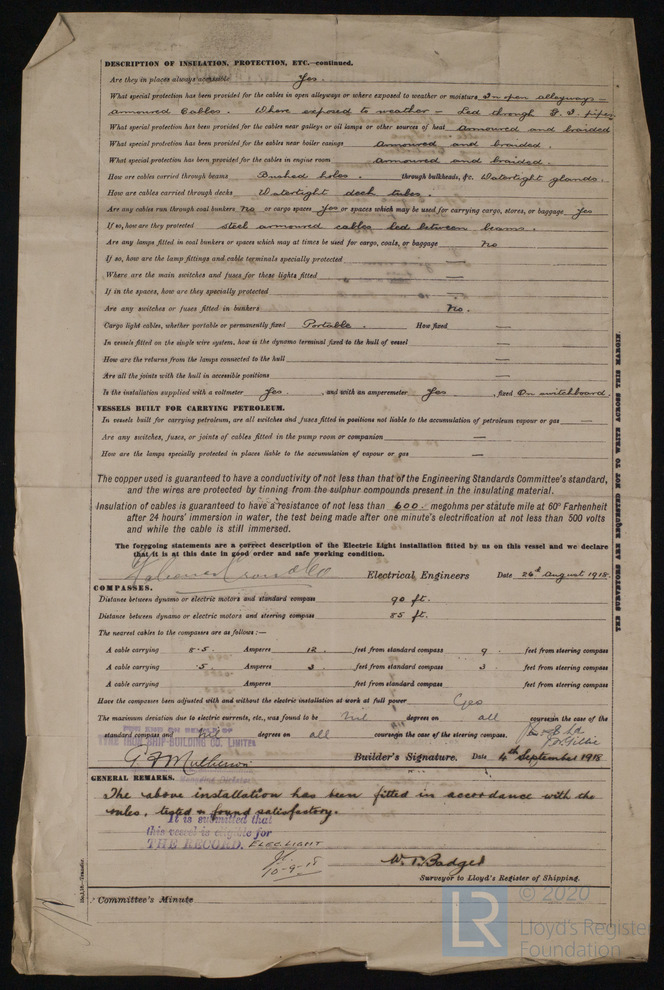 DESCRIPTION OF INSULATION, PROTECTION, ETC.—continued.
Are they in places always accessible Yes.
What special protection has been provided for the cables in open alleyways or where exposed to weather or moisture In open alleyways –
armoured Cables. Where exposed to weather – Led through G. I. pipes
What special protection has been provided for the cables near galleys or oil lamps or other sources of heat armoured and braided
What special protection has been provided for the cables near boiler casings armoured and braided.
What special protection has been provided for the cables in engine room armoured and braided.
How are cables carried through beams Bushed holes. through bulkheads, &c. Watertight glands.
How are cables carried through decks Watertight deck tubes.
Are any cables run through coal bunkers No or cargo spaces Yes or spaces which may be used for carrying cargo, stores, or baggage Yes
If so, how are they protected Steel armoured cables led between beams.
Are any lamps fitted in coal bunkers or spaces which may at times be used for cargo, coals, or baggage No
If so, how are the lamp fittings and cable terminals specially protected —
Where are the main switches and fuses for these lights fitted —
If in the spaces, how are they specially protected —
Are any switches or fuses fitted in bunkers No.
Cargo light cables, whether portable or permanently fixed Portable. How fixed —
In vessels fitted on the single wire system, how is the dynamo terminal fixed to the hull of vessel —
How are the returns from the lamps connected to the hull —
Are all the joints with the hull in accessible positions —
Is the installation supplied with a voltmeter Yes. , and with an amperemeter Yes , fixed On switchboard.
VESSELS BUILT FOR CARRYING PETROLEUM.
In vessels built for carrying petroleum, are all switches and fuses fitted in positions not liable to the accumulation of petroleum vapour or gas —
Are any switches, fuses, or joints of cables fitted in the pump room or companion —
How are the lamps specially protected in places liable to the accumulation of vapour or gas —
The copper used is guaranteed to have a conductivity of not less than that of the Engineering Standards Committee's standard,
and the wires are protected by tinning from the sulphur compounds present in the insulating material.
Insulation of cables is guaranteed to have a resistance of not less than 600 megohms per statute mile at 60° Farhenheit
after 24 hours' immersion in water, the test being made after one minute's electrification at not less than 500 volts
and while the cable is still immersed.
The foregoing statements are a correct description of the Electric Light installation fitted by us on this vessel and we declare
that it is at this date in good order and safe working condition.
Electrical Engineers Date 26th August 1918.
COMPASSES.
Distance between dynamo or electric motors and standard compass 90 ft.
Distance between dynamo or electric motors and steering compass 85 ft.
The nearest cables to the compasses are as follows:—
A cable carrying 8.5 Amperes 12 feet from standard compass 9 feet from steering compass
A cable carrying .5 Amperes 3 feet from standard compass 3 feet from steering compass
A cable carrying Amperes feet from standard compass feet from steering compass
Have the compasses been adjusted with and without the electric installation at work at full power Yes
The maximum deviation due to electric currents, etc., was found to be Nil degrees on all course in the case of the
standard compass and Nil degrees on all course in the case of the steering compass.
FOR AND ON BEHALF OF
TYNE IRON SHIP-BUILDING CO. LIMITED
Builder's Signature. Date 4th September 1918
GENERAL REMARKS.
The above installation has been fitted in accordance with the
rules, tested & found satisfactory.
It is submitted that
this vessel is eligible for
THE RECORD. ELEC. LIGHT
10-9-18
W. T. Badger
Surveyor to Lloyd's Register of Shipping.
Committee's Minute
THE SURVEYORS ARE REQUESTED NOT TO WRITE ACROSS THIS MARGIN.
© 2020
LR
Lloyd's Register
Foundation